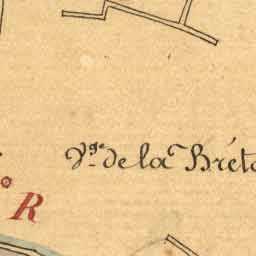 V.ge de la Bréta
R